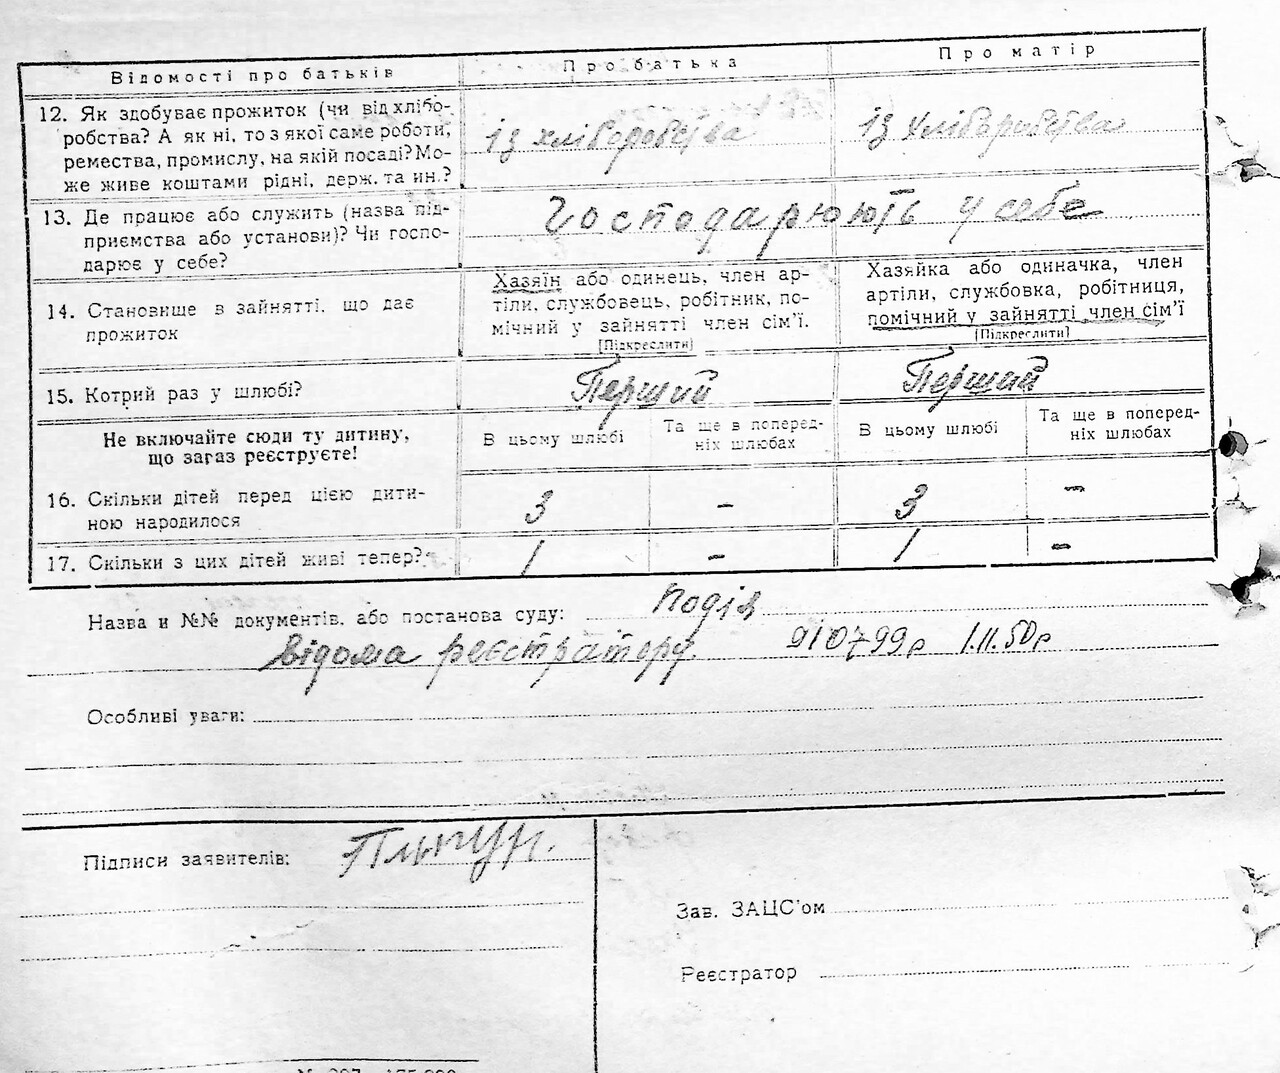 Відомості про батьків
Про батька
Про матір
12. Як здобуває прожиток (чи від хлібо-
робства? А як ні, то з якої саме роботи,
ремества, промислу, на якій посаді? Мо-
же живе коштами рідні, держ. та ин.?
із хліборобства
із хліборобства
13. Де працює або служить (назва під-
приємства або установи)? Чи госпо-
дарює у себе?
Господарюють у себе
14. Становище в зайнятті, що дає
прожиток
Хазяїн або одинець, член ар-
тіли, службовець, робітник, по-
мічний у зайнятті член сім'ї.
[Підкреслити]
Хазяйка або одиначка, член
артіли, службовка, робітниця,
помічний у зайнятті член сім'ї
[Підкреслити]
15. Котрий раз у шлюбі?
Перший
Перший
Не включайте сюди ту дитину,
що загаз реєструєте!
В цьому шлюбі
Та ще в поперед-
ніх шлюбах
В цьому шлюбі
Та ще в поперед-
ніх шлюбах
16. Скільки дітей перед цією дити-
ною народилося
3 - 3 -
17. Скільки з цих дітей живі тепер?
1 - 1 -
Назва и №№ документів. або постанова суду: подія
відома реєстратору. 910799р 1.11.50р
Особливі уваги:
Підписи заявителів:
Зав. ЗАЦС'ом
Реєстратор